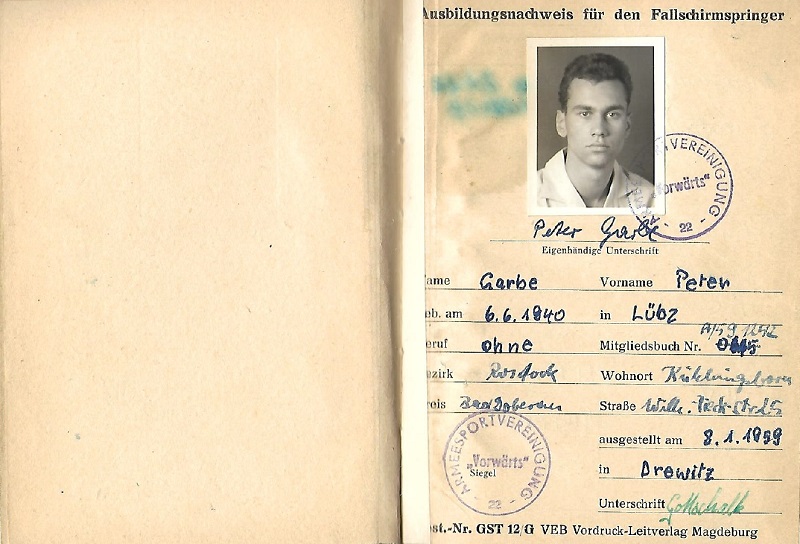 Ausbildungsnachweis für den Fallschirmspringer
ARMEESPORTVEREINIGUNG
"Vorwärts"
22
Peter Garbe
Eigenhändige Unterschrift
ame Garbe Vorname Peter
eb. am 6.6.1940 in Lübz
A/59 1252
eruf ohne Mitgliedsbuch Nr.
ezirk Rostock Wohnort Kühlungsborn
reis Bad Doberan Straße Wilh.
ausgestellt am 8.1.1959
ARMEESPORTVEREINIGUNG
„Vorwärts"
Siegel
22
in Drewitz
Unterschrift Gottschalk
st.-Nr. GST 12/G VEB Vordruck-Leitverlag Magdeburg